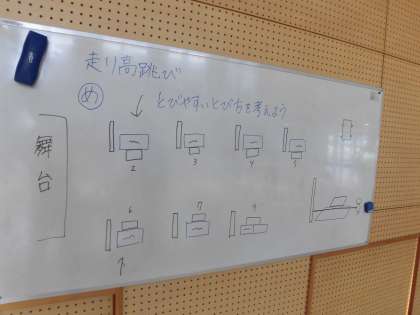 走り高跳び
め とびやすいとび方を考えよう
舞台
2 3 4 5
6 7